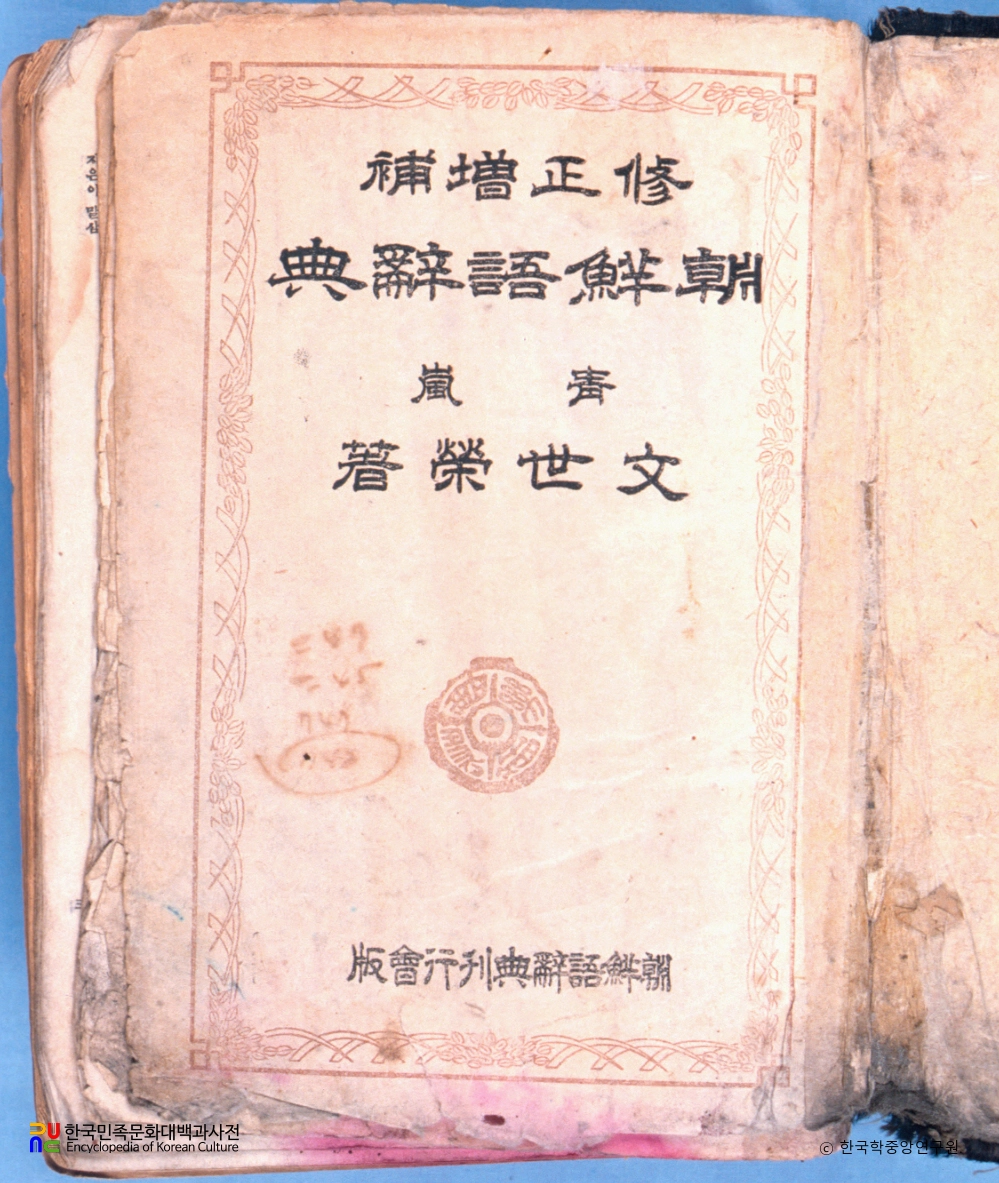 修正增補
朝鮮語辭典
靑嵐
文世榮著
朝鮮語辭典刊行會版
한국민족문화대백과사전
Encyclopedia of Korean Culture
© 한국학중앙연구원